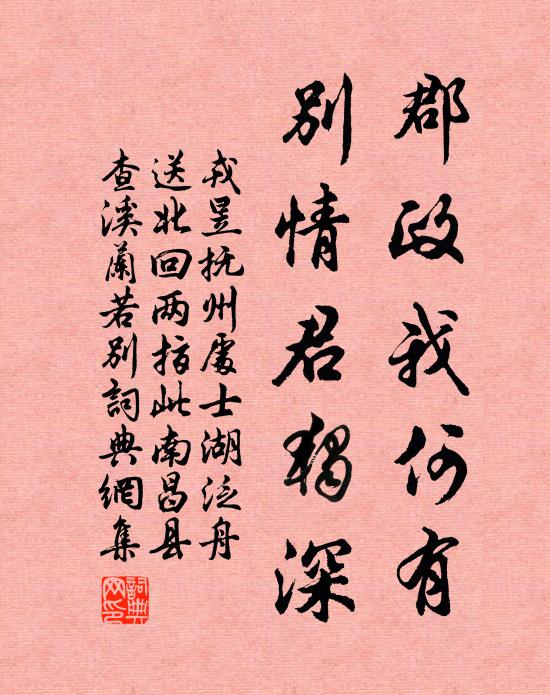 郡政我何有
别情君独深
戎昱抚州处士湖泛舟
送北回两指此南昌县
查溪蘭若别詞典網集
詞典網印